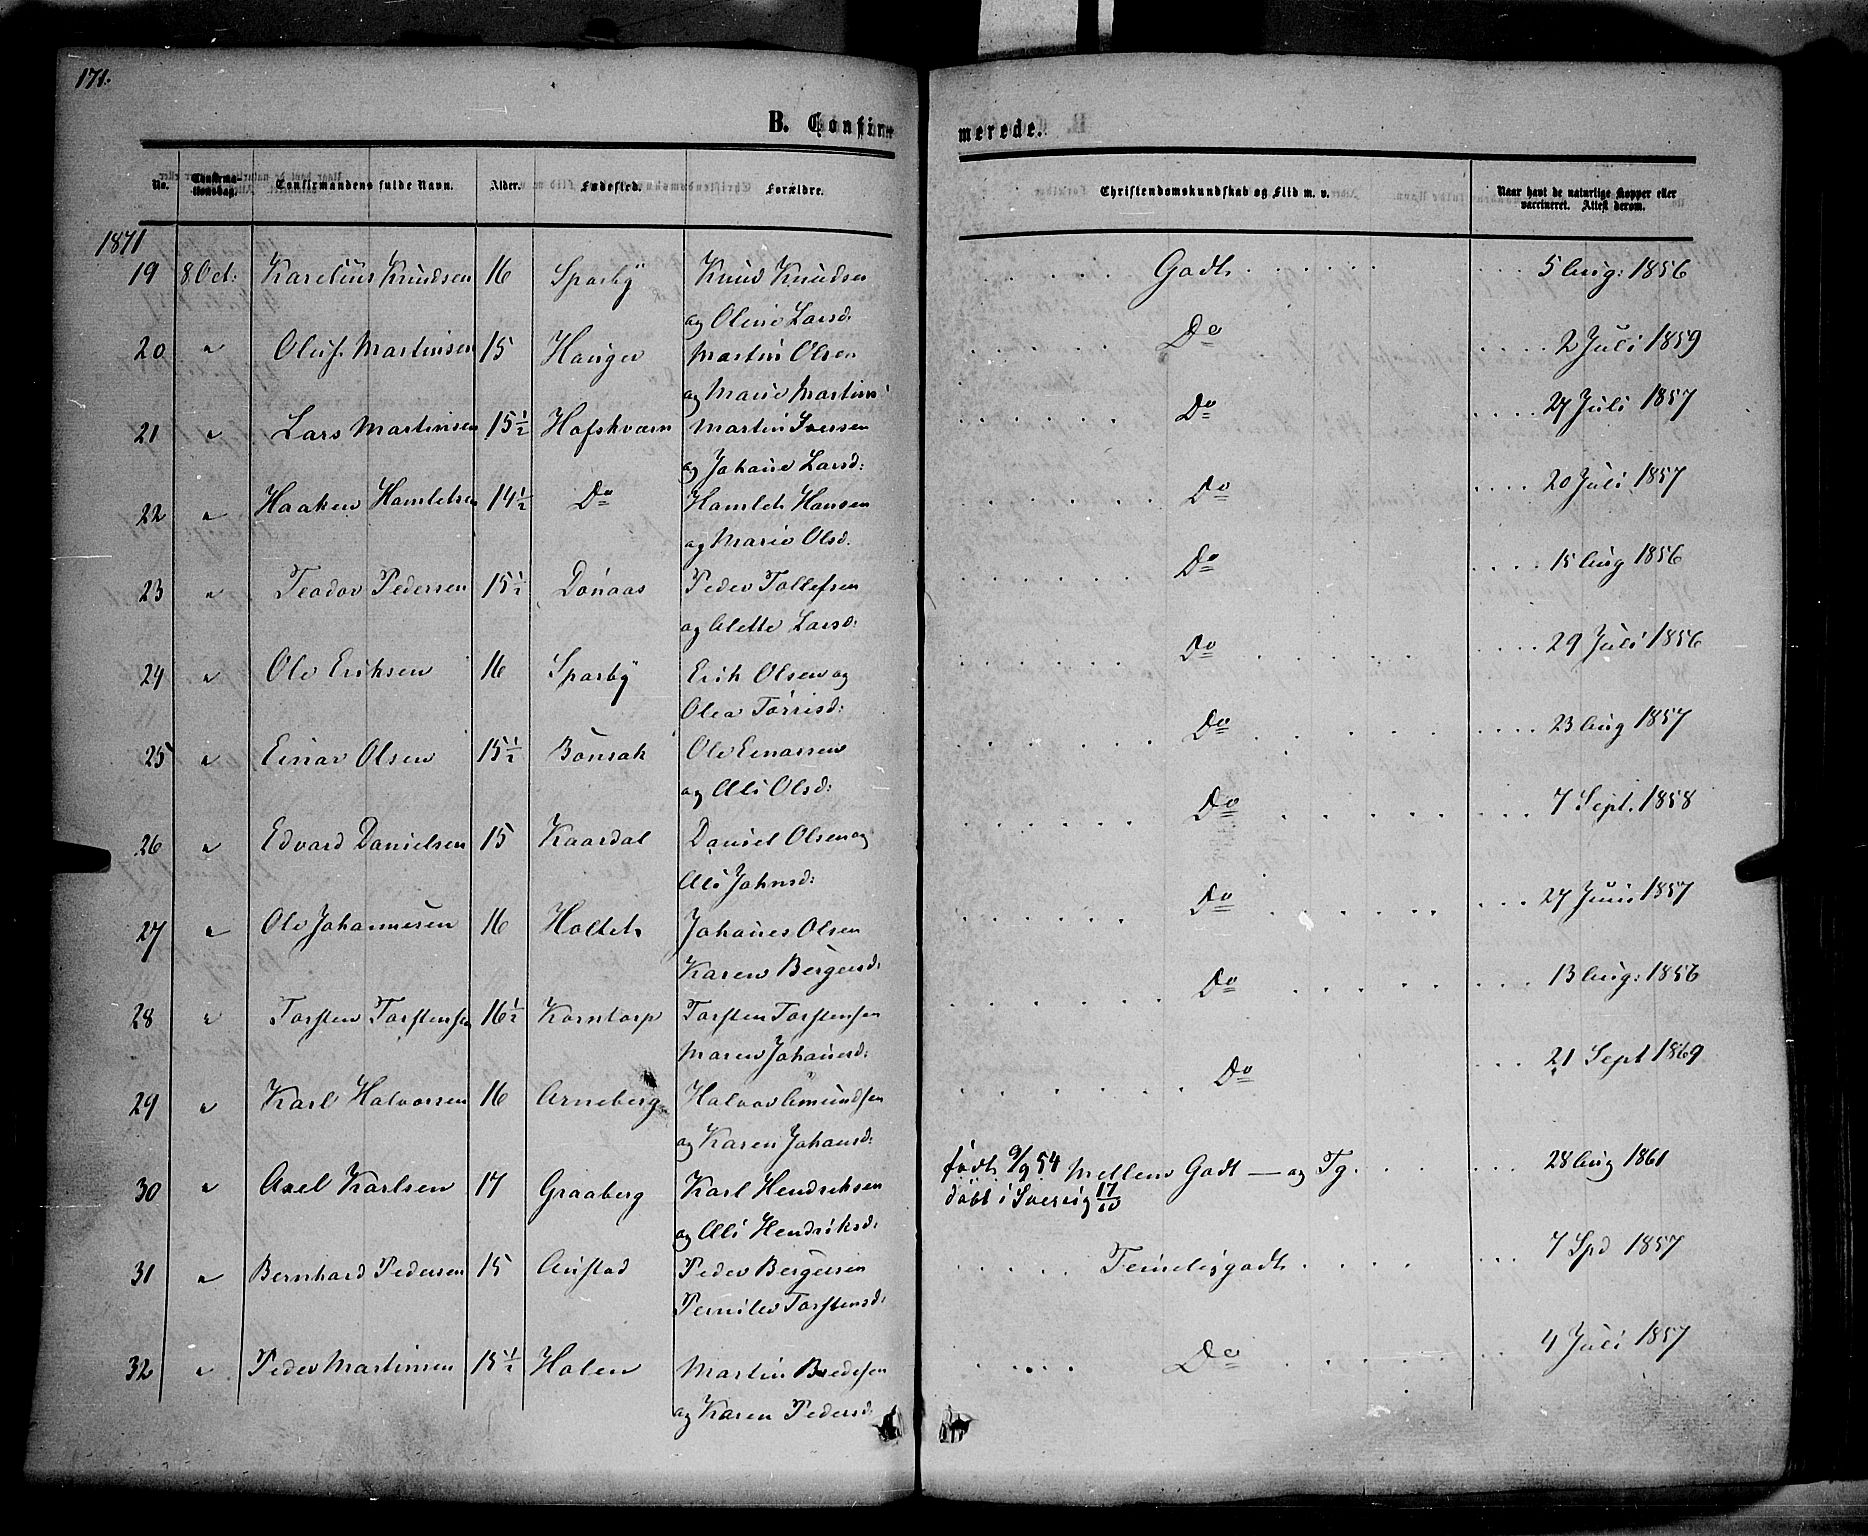 171.
B. Confirmerede.
No. Confirmationsdag. Confirmandens fulde Navn. Alder. Fødested. Forældre. Christendomskundskab og Flid m. v. Naar havt de naturlige Kopper eller vaccineret. Attest derom.
1871
19 8 Oct: Karelius Knudsen 16 Sparby Knud Knudsen Godt 5 Aug: 1856
og Oline Larsd:
20 " Oluf Martinsen 15 Hauger Martin Olsen Do 2 Juli 1859
og Marie Martins
21 " Lars Martinsen 15½ Hofskværn Martin Iversen Do 27 Juli 1857
og Johane Larsd:
22 " Haaken Hamletsen 14½ Do Hamlet Hansen Do 20 Juli 1857
og Marie Olsd.
23 " Teodor Pedersen 15½ Dønaas Peder Tollefsen Do 15 Aug 1856
og Alette Larsd:
24 " Ole Eriksen 16 Sparby Erik Olsen og Do 29 Juli 1856
Olea Torrisd:
25 " Einar Olsen 15½ Bønsak Ole Einarsen Do 23 Aug 1857
og Ali Olsd:
26 " Edvard Danielsen 15 Kaardal Daniel Olsen og Do 7 Sept. 1858
Ali Johnsd:
27 " Ole Johannesen 16 Holtet Johanes Olsen Do 27 Juni 1857
Karen Bergersd:
28 " Torsten Torstensen 16½ Korntorp Torsten Torstensen Do 13 Aug: 1856
Maren Johanesd:
29 " Karl Halvorsen 16 Arneberg Halvor Amundsen Do 21 Sept 1869
og Karen Johansd:
30 " Axel Karlsen 17 Graaberg Karl Hendriksen født 9/9 54 Mellem Godt — og Tg. 28 Aug 1861
døbt i Sverrig 17/10
og Ali Hendriksd:
31 " Bernhard Pedersen 15 Austad Peder Bergersen Temeligodt 7 Spd 1857
Pernille Torstensd:
32 " Peder Martinsen 15½ Holen Martin Bredesen Do 4 Juli 1857
og Karen Pedersd: